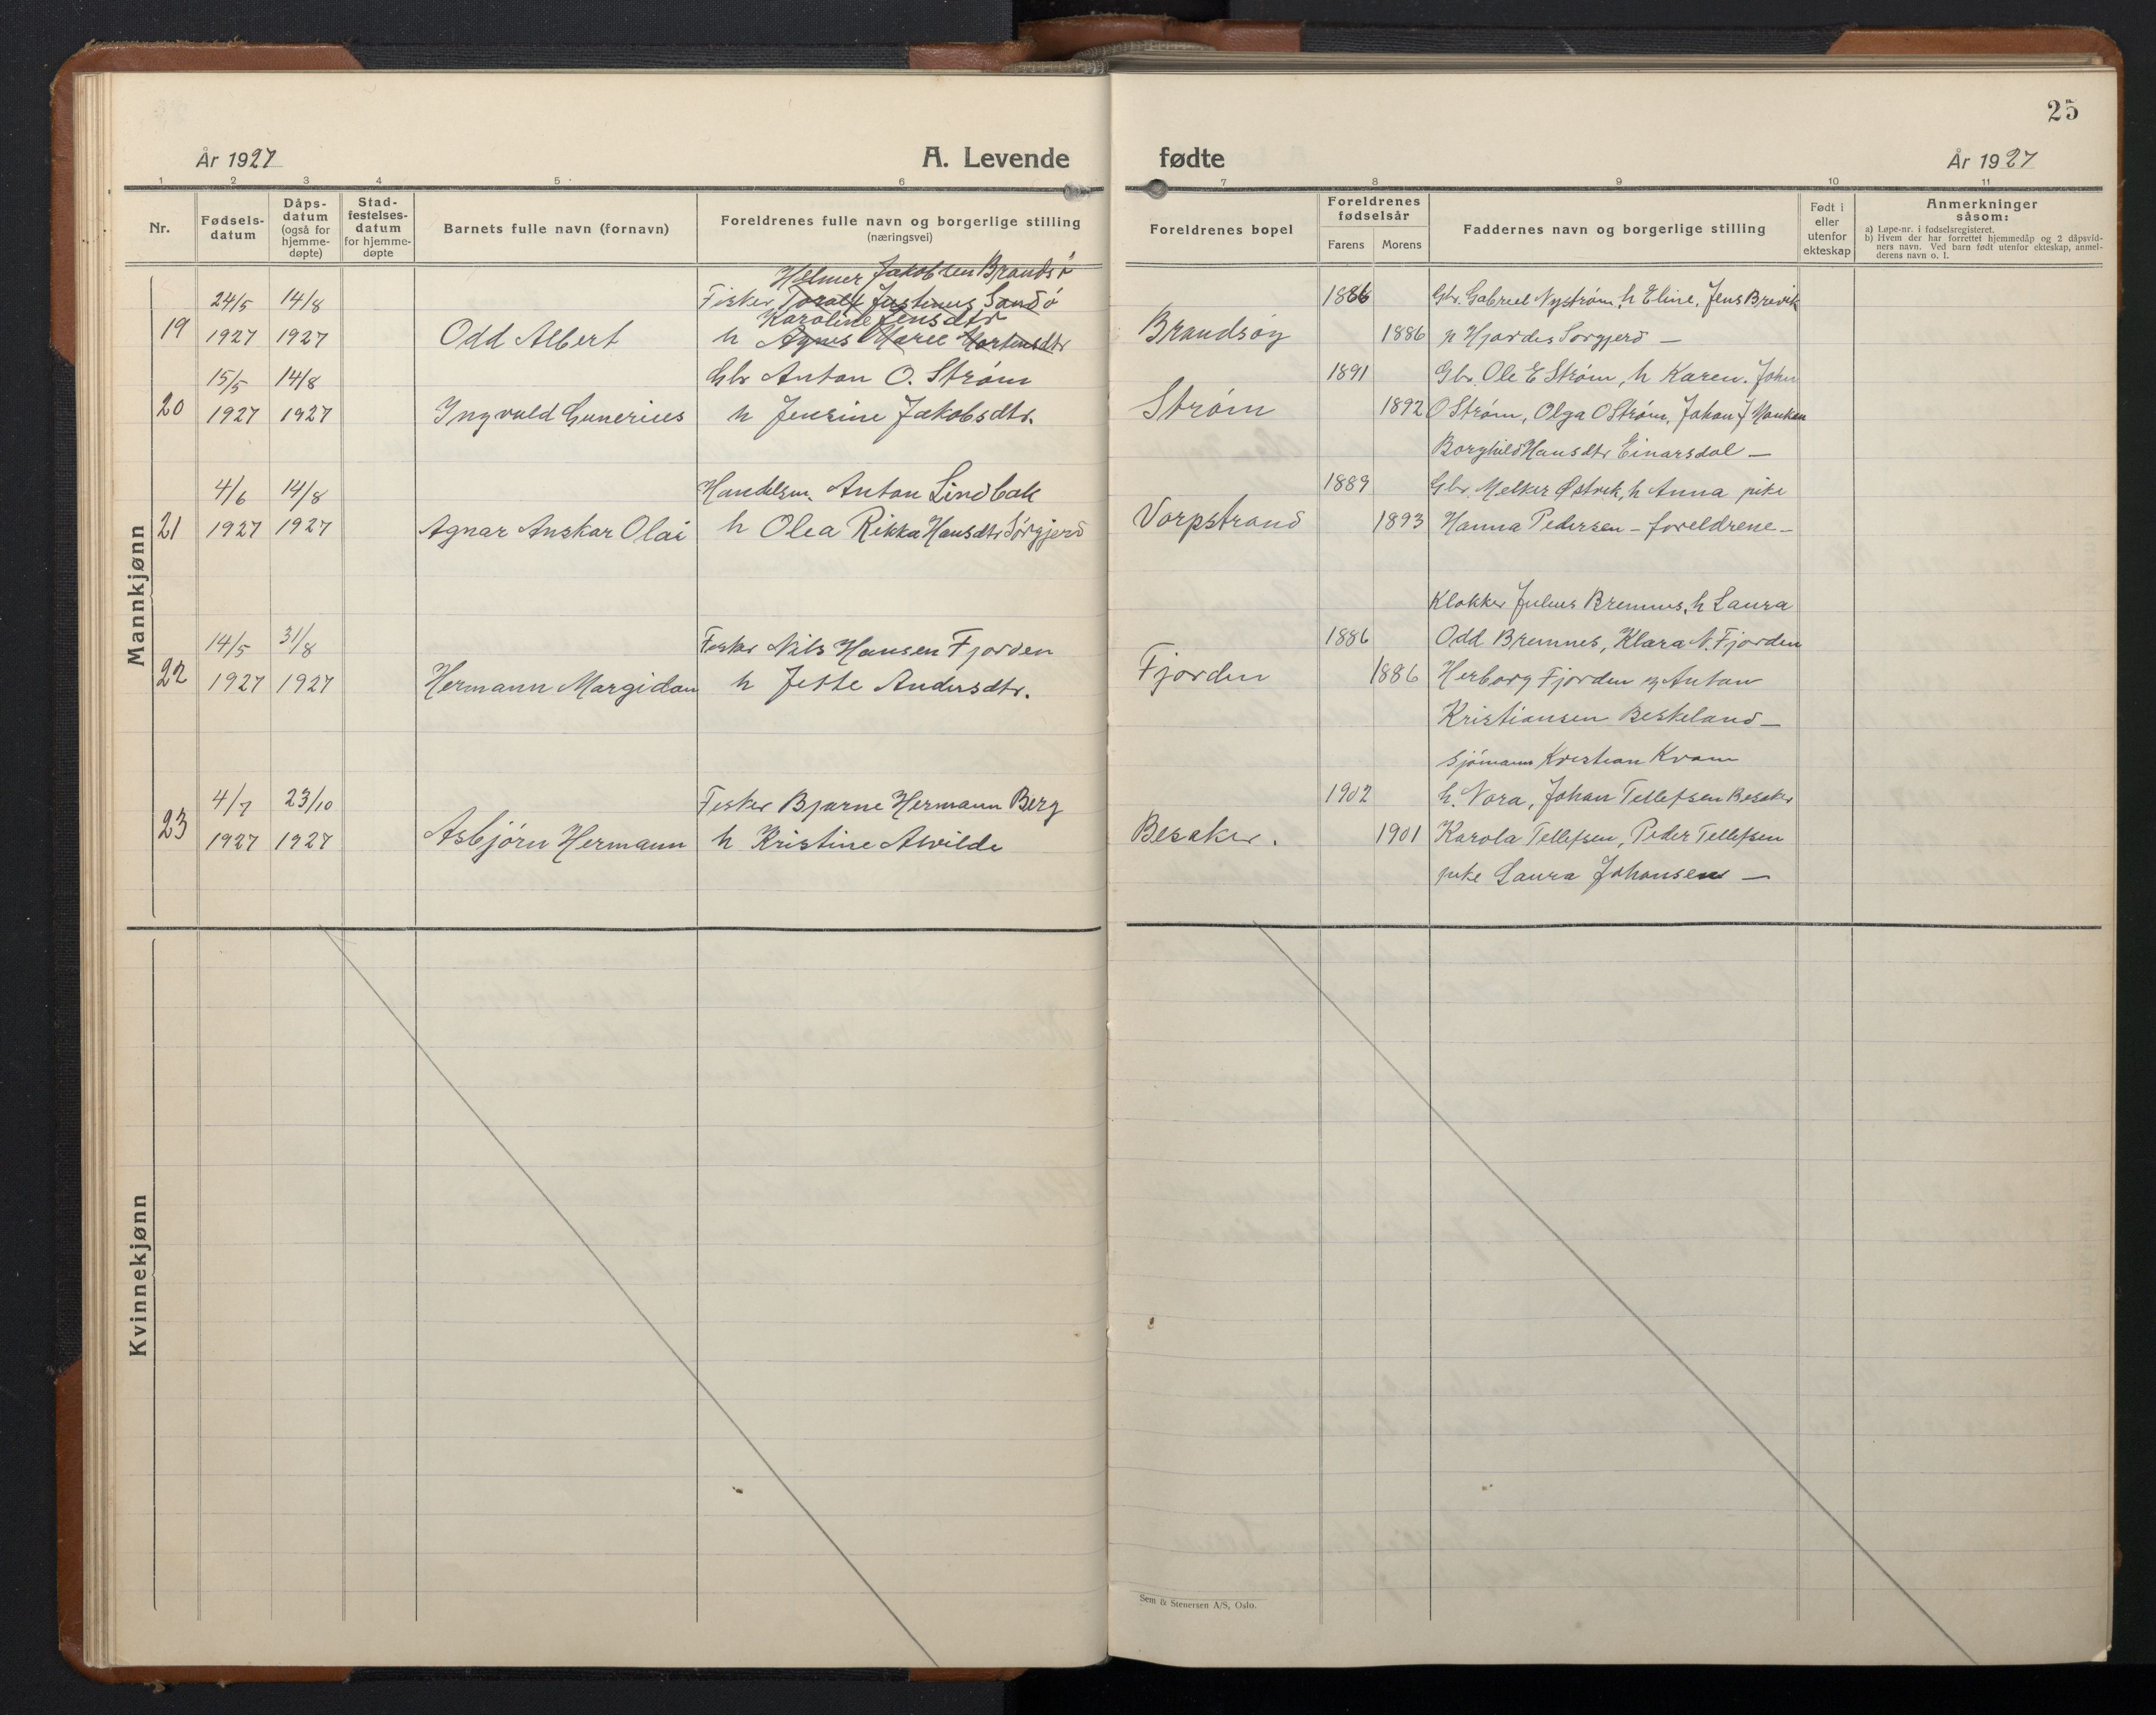 25
År 1927
A. Levende
fødte
År 1927
1 2 3 4 5 6 7 8 9 10 11
Nr.
Fødsels-
datum
Dåps-
datum
(også for
hjemme-
døpte)
Stad-
festelses-
datum
for hjemme-
døpte
Barnets fulle navn (fornavn)
Foreldrenes fulle navn og borgerlige stilling
(næringsvei)
Foreldrenes bopel
Foreldrenes
fødselsår
Farens
Morens
Faddernes navn og borgerlige stilling
Født i
eller
utenfor
ekteskap
Anmerkninger
såsom:
a) Løpe-nr. i fødselsregisteret.
b) Hvem der har forrettet hjemmedåp og 2 dåpsvid-
ners navn. Ved barn født utenfor ekteskap, anmel-
derens navn o. l.
Mannkjønn
Helmer Jakobsen Brandsø
24/5 14/8 Fisker Toralf Justinus Sandø 1886 Gbr. Gabriel Nystrøm, h Eline, Jens Brevik
Karoline Jensdtr
19 1927 1927 Odd Albert h Agnes Marie Martensdtr Brandsøy 1886 p Hjørdis Sørgjerd —
15/5 14/8 Gbr Anton O. Strøm 1891 Gbr. Ole E Strøm, h Karen. John
20 1927 1927 Ingvald Gunerius h Jensine Jakobsdtr. Strøm 1892 O Strøm, Olga O Strøm, Johan J
Borghild Hansdtr Einarsdal —
4/6 14/8 Handelsm. Anton Lindbak 1889 Gbr. Melker Østvik, h Anna pike
21 1927 1927 Agnar Anskar Olai h Olea Rikka Hansdtr Sørgjerd Vorpstrand 1893 Hanna Pedersen – foreldrene –
Klokker Julius Bremnes, h Laura
14/5 31/8 Fisker Nils Hansen Fjorden 1886 Odd Bremnes, Klara N. Fjorden
22 1927 1927 Hermann Margidan h Jette Andersdtr. Fjorden 1886 Herborg Fjorden og Anton
Kristiansen Beskeland —
sjømann Kristian Kvam
4/7 23/10 Fisker Bjarne Hermann Berg 1902 h. Nora, Johan Tellefsen Besaker
23 1927 1927 Asbjørn Hermann h Kristine Alvilde Besaker. 1901 Karola Tellefsen, Peder Tellefsen
pike Laura Johansen —
Kvinnekjønn
Sem & Stenersen A/S, Oslo.